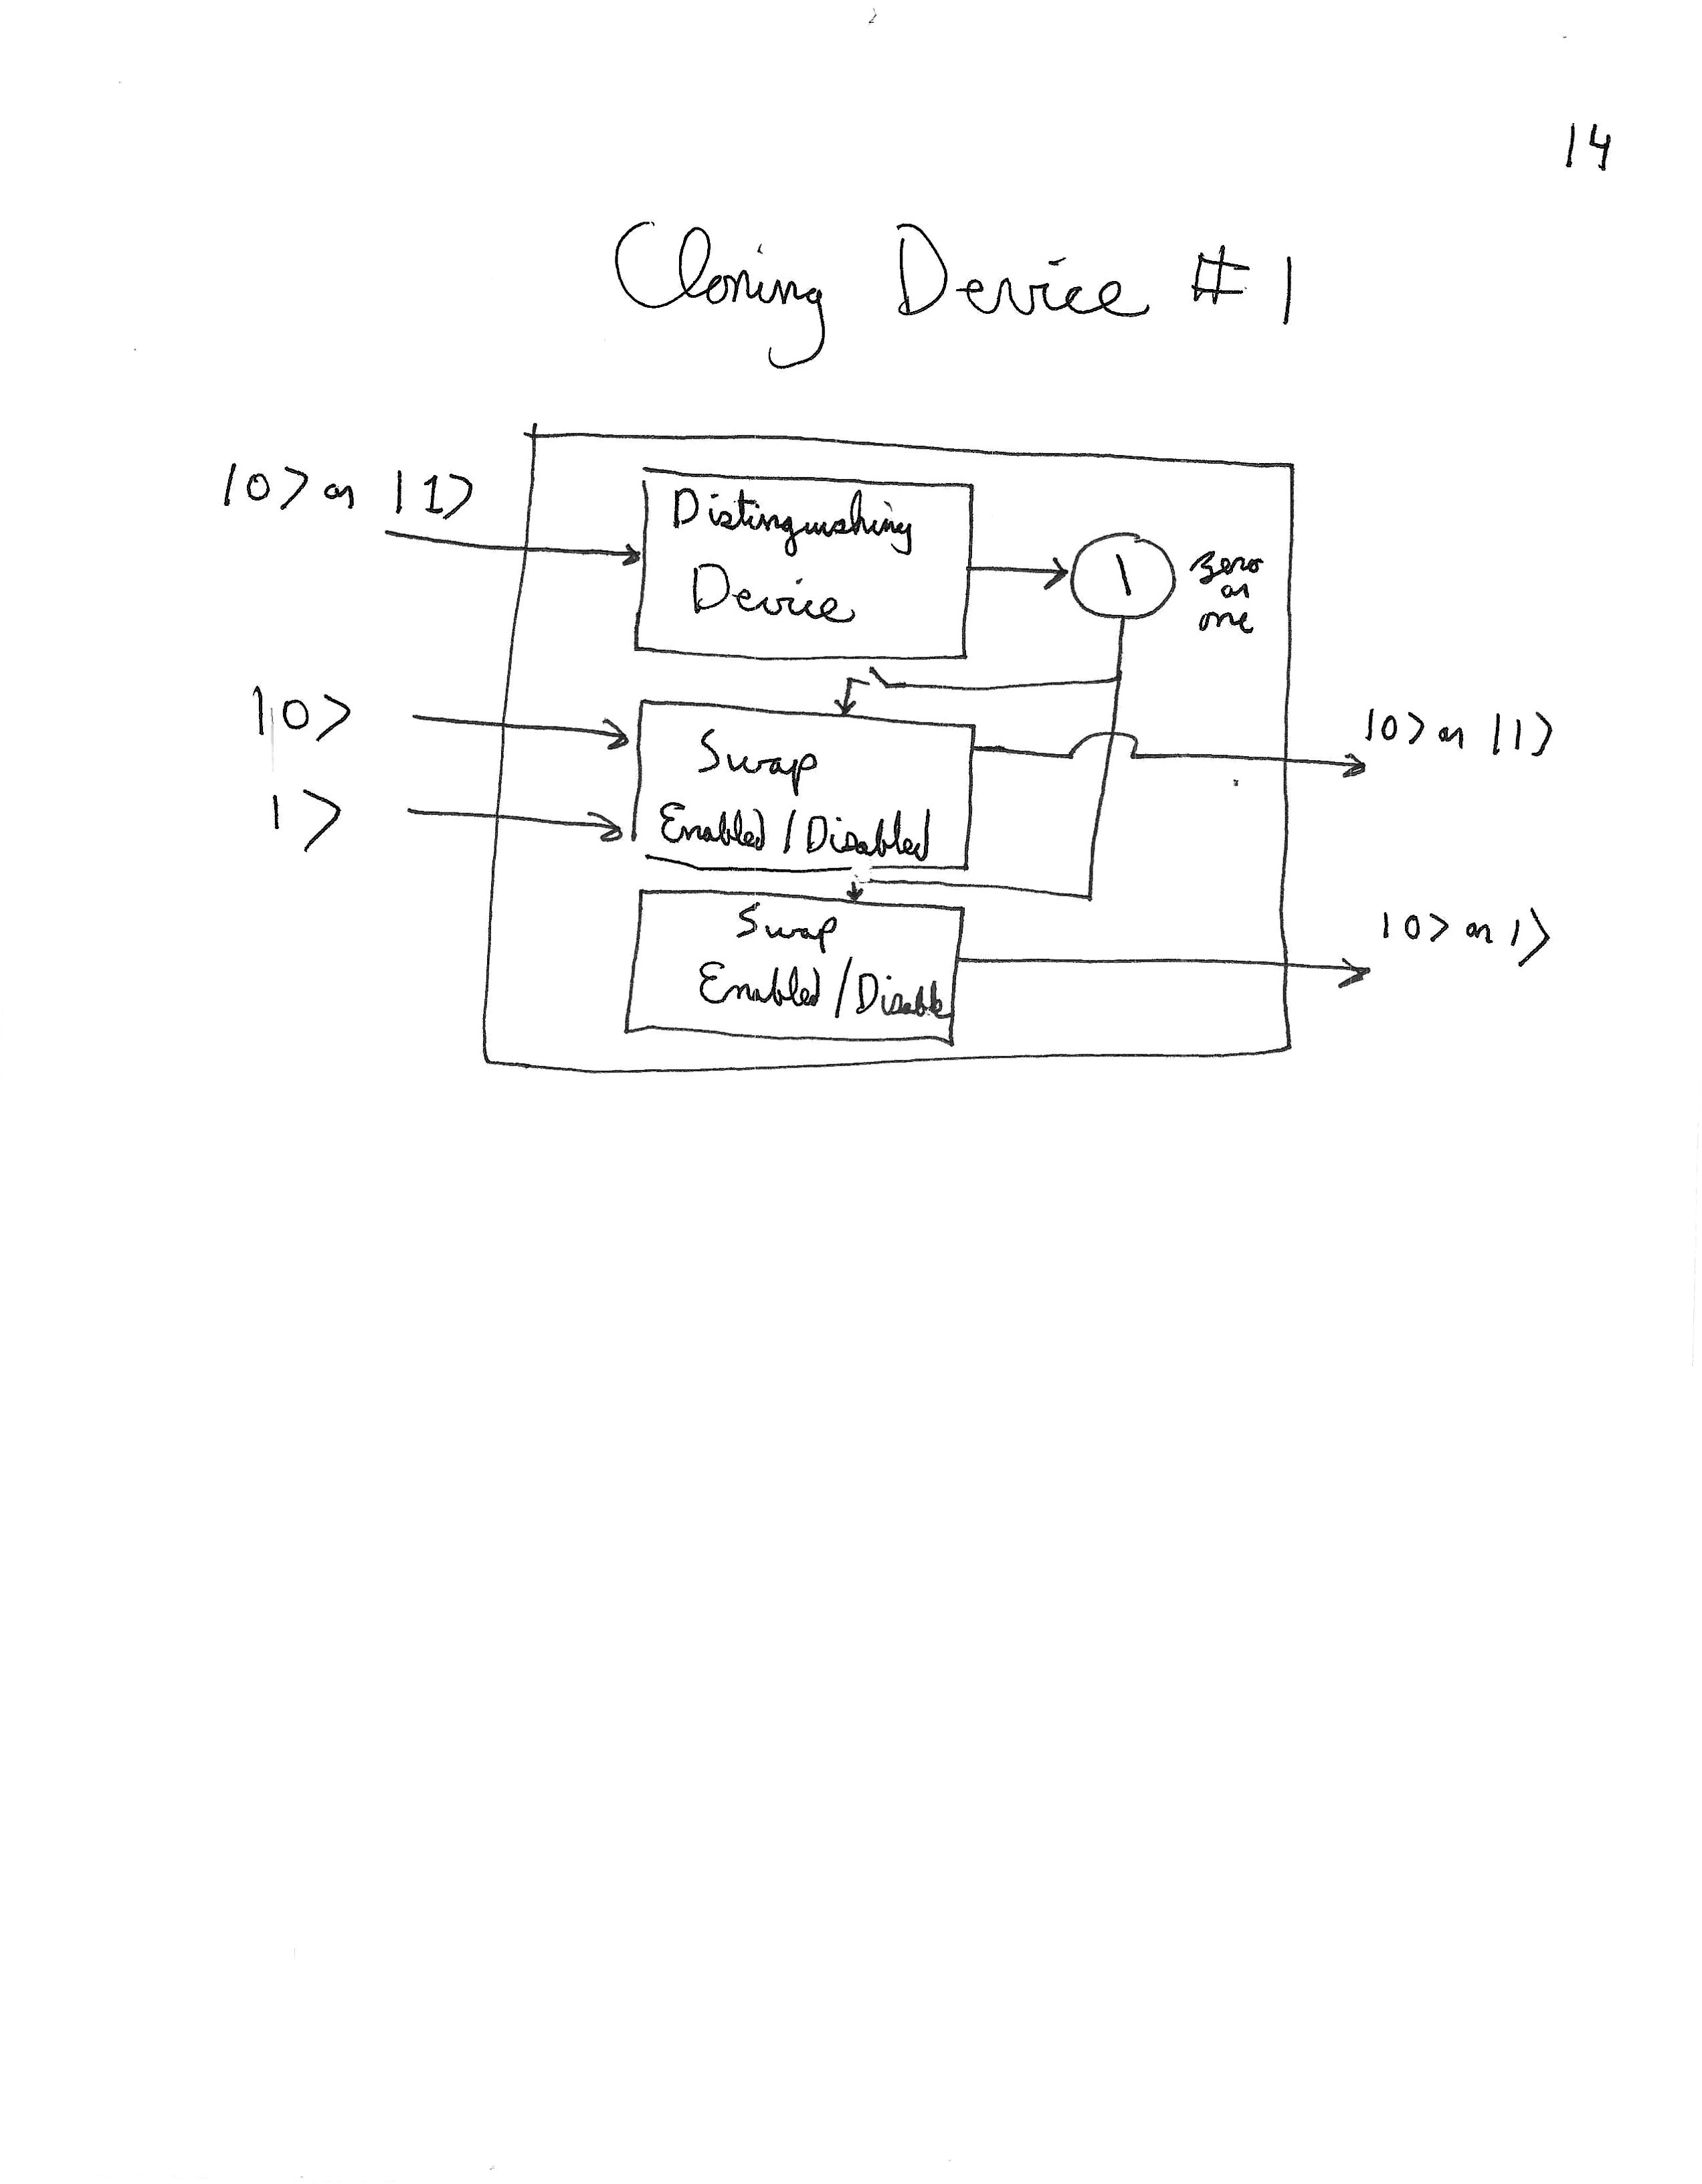 14
Cloning Device #1
|0> or |1>
Distinguishing
Device
1
zero
or
one
|0>
|>
Swap
Enabled / Disabled
|0> or |1>
Swap
Enabled / Disable
|0> or |>